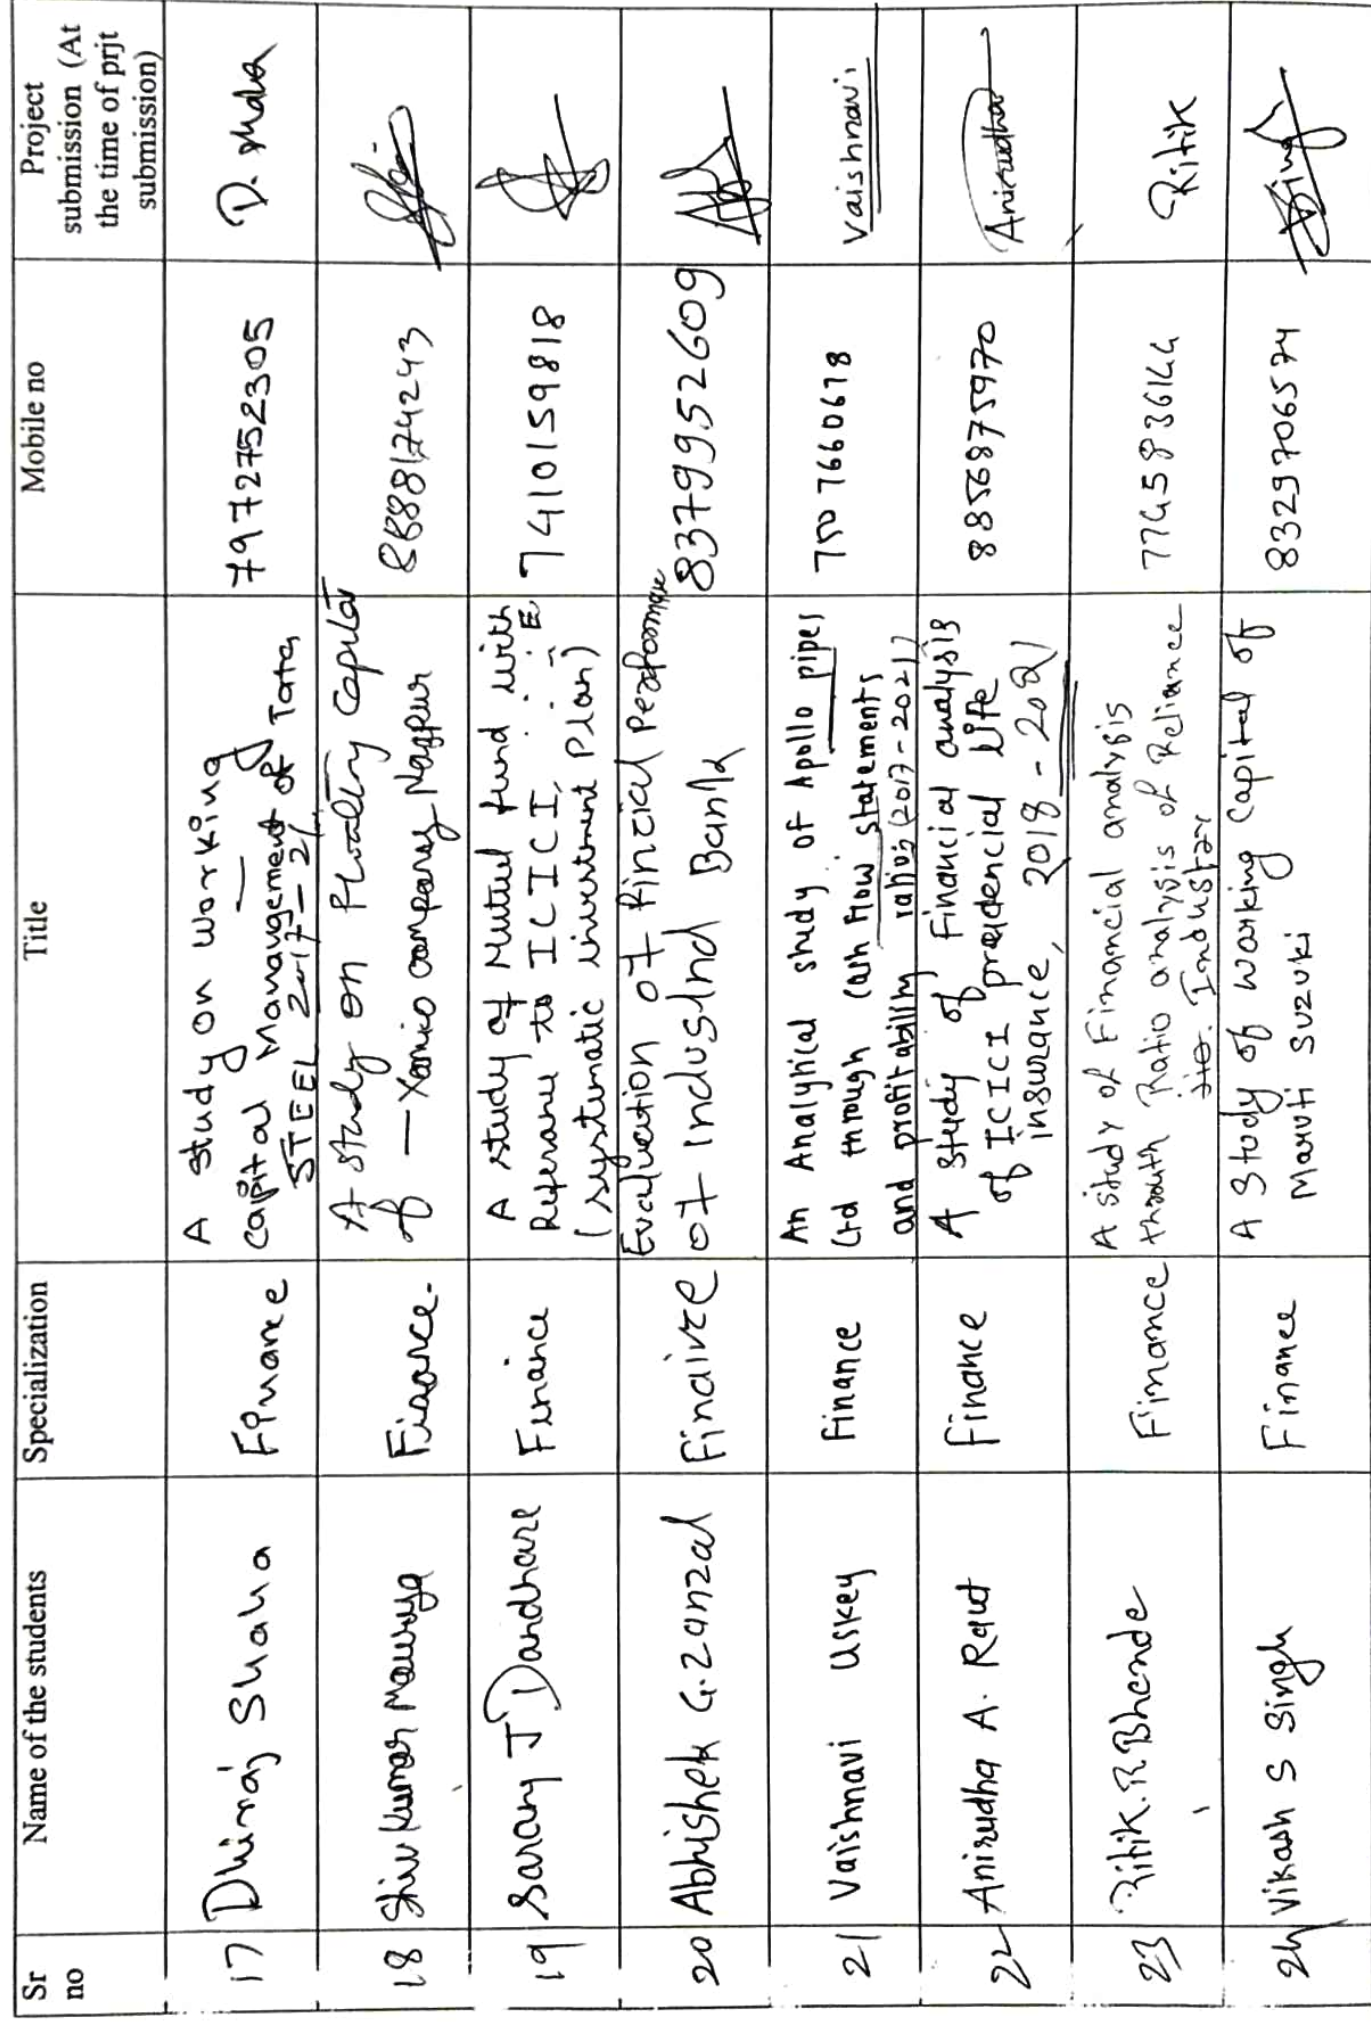 Sr no
Name of the students
Specialization
Title
Mobile no
Project submission (At the time of prjt submission)
17
Dhiraj Shaha
Finance
A study on working
capital Management of Tata
STEEL 2017-21
7972752305
D. shaha
18
Shiv kumar Maurya
Finance.
A study on Floating Capital
of — company, Nagpur
8888174243
19
Sarang J Dandhare
Finance
A study of Mutul fund with
Referance to ICICI,
(systematic investment Plan)
7410159818
20
Abhishek G. zanzal
Finaince
Evaluation of Fincial Performance
of Indusind Bank
8379952609
21
Vaishnavi Uskey
Finance
An Analytical study of Apollo pipes
Ltd through cash flow statements
and profitability ratios (2017-2021)
7507660678
Vaishnavi
22
Anirudha A. Raut
Finance
A study of Financial analysis
of ICICI prudencial life
insurance, 2018-2021
8856875970
Anirudha
23
Ritik.R.Bhende
Finance
A study of Financial analysis
Ratio analysis of Reliance
Industry
7745836144
Ritik
24
Vikash S Singh
Finance
A Study of working capital of
Maruti suzuki
8329706574